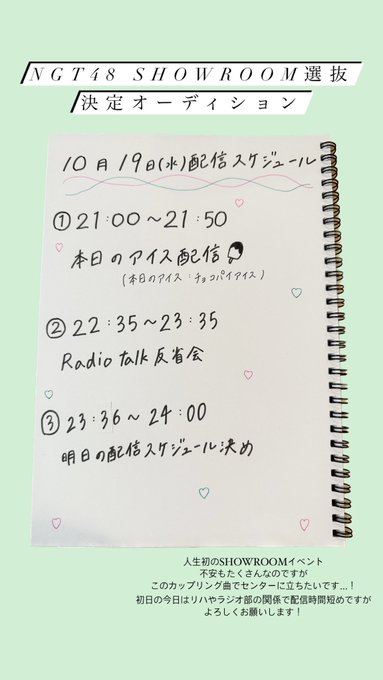 NGT48 SHOWROOM選抜
決定オーディション
10月19日(水)配信スケジュール
①21:00〜21:50
本日のアイス配信
(本日のアイス:チョコパイアイス)
②22:35〜23:35
Radio talk 反省会
③23:36〜24:00
明日の配信スケジュール決め
人生初のSHOWROOMイベント
不安もたくさんなのですが
このカップリング曲でセンターに立ちたいです…!
初日の今日はリハやラジオ部の関係で配信時間短めですが
よろしくお願いします!